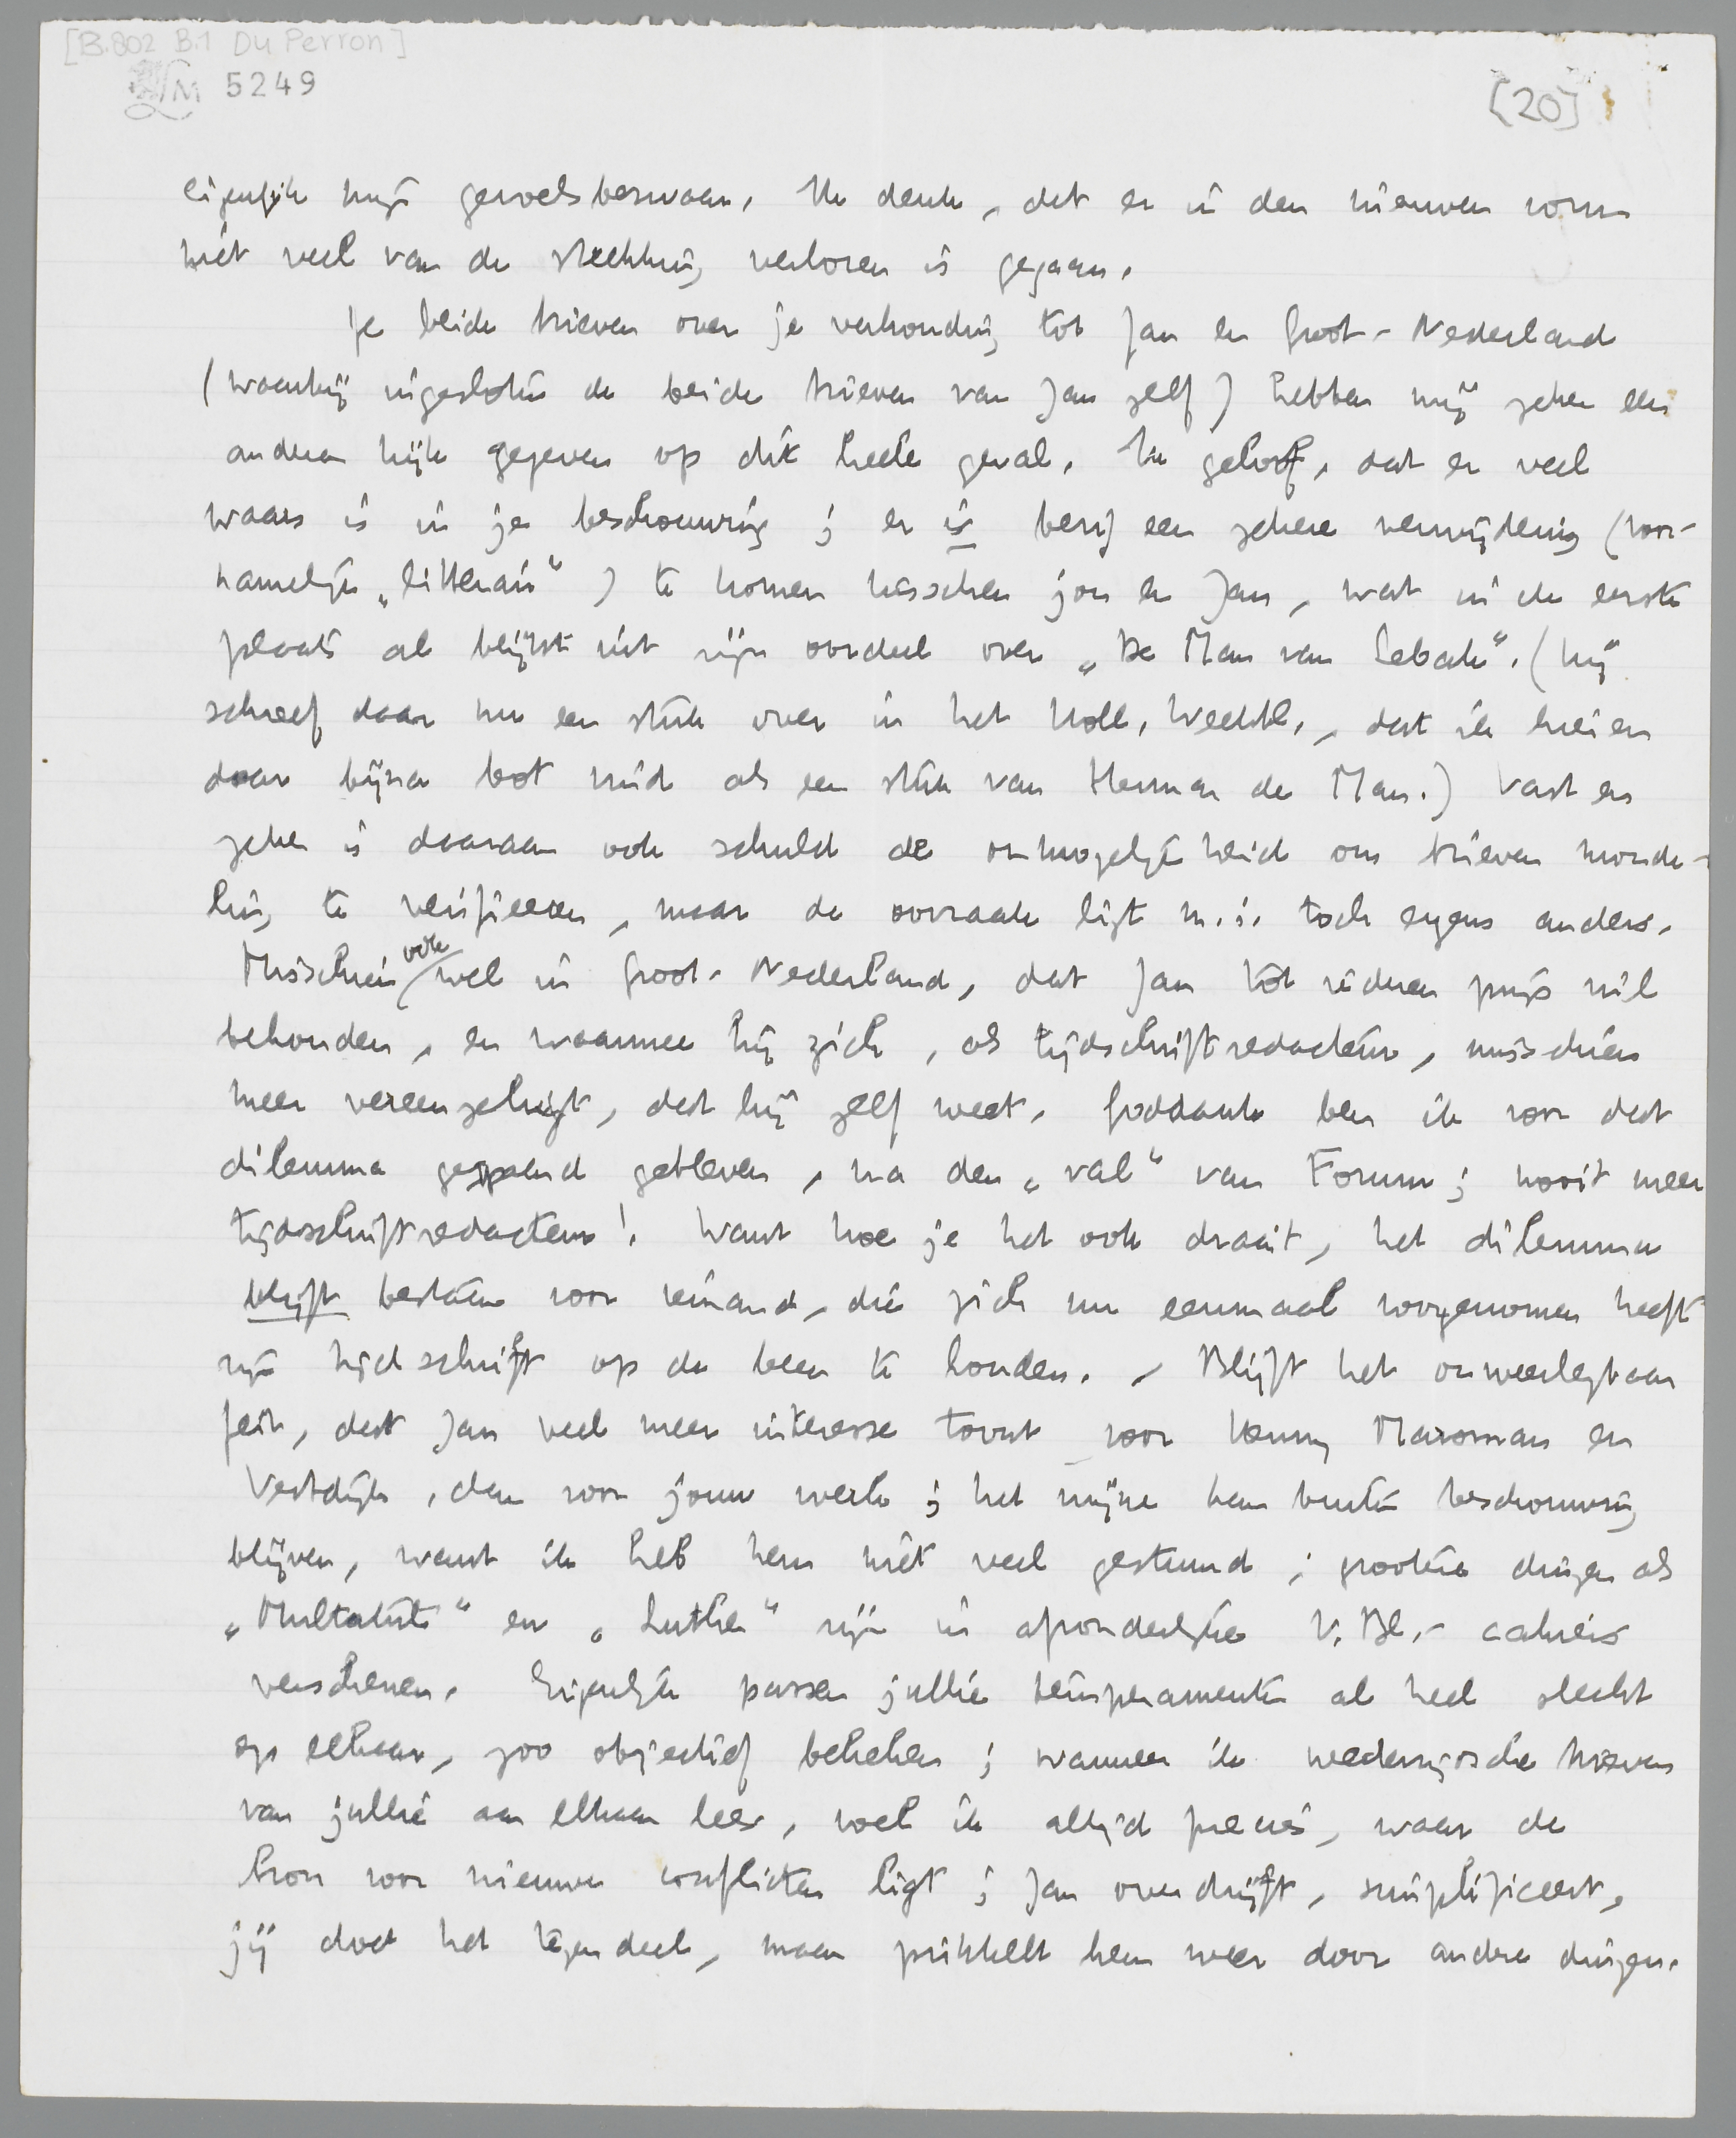 [B.802 B.1 Du Perron]
LM 5249
[20]
eigenlijk mijn gevoelsbezwaar. Ik denk, dat er in den nieuwen vorm
niet veel van de strekking verloren is gegaan.
Je beide brieven over je verhouding tot Jan en Groot-Nederland
(waarbij ingesloten de beide brieven van Jan zelf) hebben mij zeker een
anderen kijk gegeven op dit heele geval. Ik geloof, dat er veel
waars is in je beschouwing; er is bezig een zekere verwijdering (voor-
namelijk „litterair") te komen tusschen jou en Jan, wat in de eerste
plaats al blijkt uit zijn oordeel over „De Man van Lebak". (Hij
schreef daar nu een stuk over in het Holl. Weekbl., dat ik hier en
daar bijna bot vind als een stuk van Herman de Man.) Vast en
zeker is daaraan ook schuld de onmogelijkheid om brieven monde-
ling te verifieeren, maar de oorzaak ligt m.i. toch ergens anders.
Misschien ook wel in Groot-Nederland, dat Jan tot iederen prijs wil
behouden, en waarmee hij zich, als tijdschriftredacteur, misschien
meer vereenzelvigt, dat hij zelf weet. Goddank ben ik voor dat
dilemma gespaard gebleven, na den „val" van Forum; nooit meer
tijdschriftredacteur! Want hoe je het ook draait, het dilemma
blijft bestaan voor iemand, die zich nu eenmaal voorgenomen heeft
zijn tijdschrift op de been te houden. - Blijft het onweerlegbaar
feit, dat Jan veel meer interesse toont voor Henny Marsman en
Vestdijk, dan voor jouw werk; het mijne kan buiten beschouwing
blijven, want ik heb hem niet veel gestuurd; grootere dingen als
„Multatuli" en „Luther" zijn in afzonderlijke V.Bl.-cahiers
verschenen. Eigenlijk passen jullie temperamenten al heel slecht
op elkaar, zoo objectief bekeken; wanneer ik wederzijdsche brieven
van jullie aan elkaar lees, voel ik altijd precies, waar de
bron voor nieuwe conflicten ligt; Jan overdrijft, simplificeert,
jij doet het tegendeel, maar prikkelt hem weer door andere dingen.